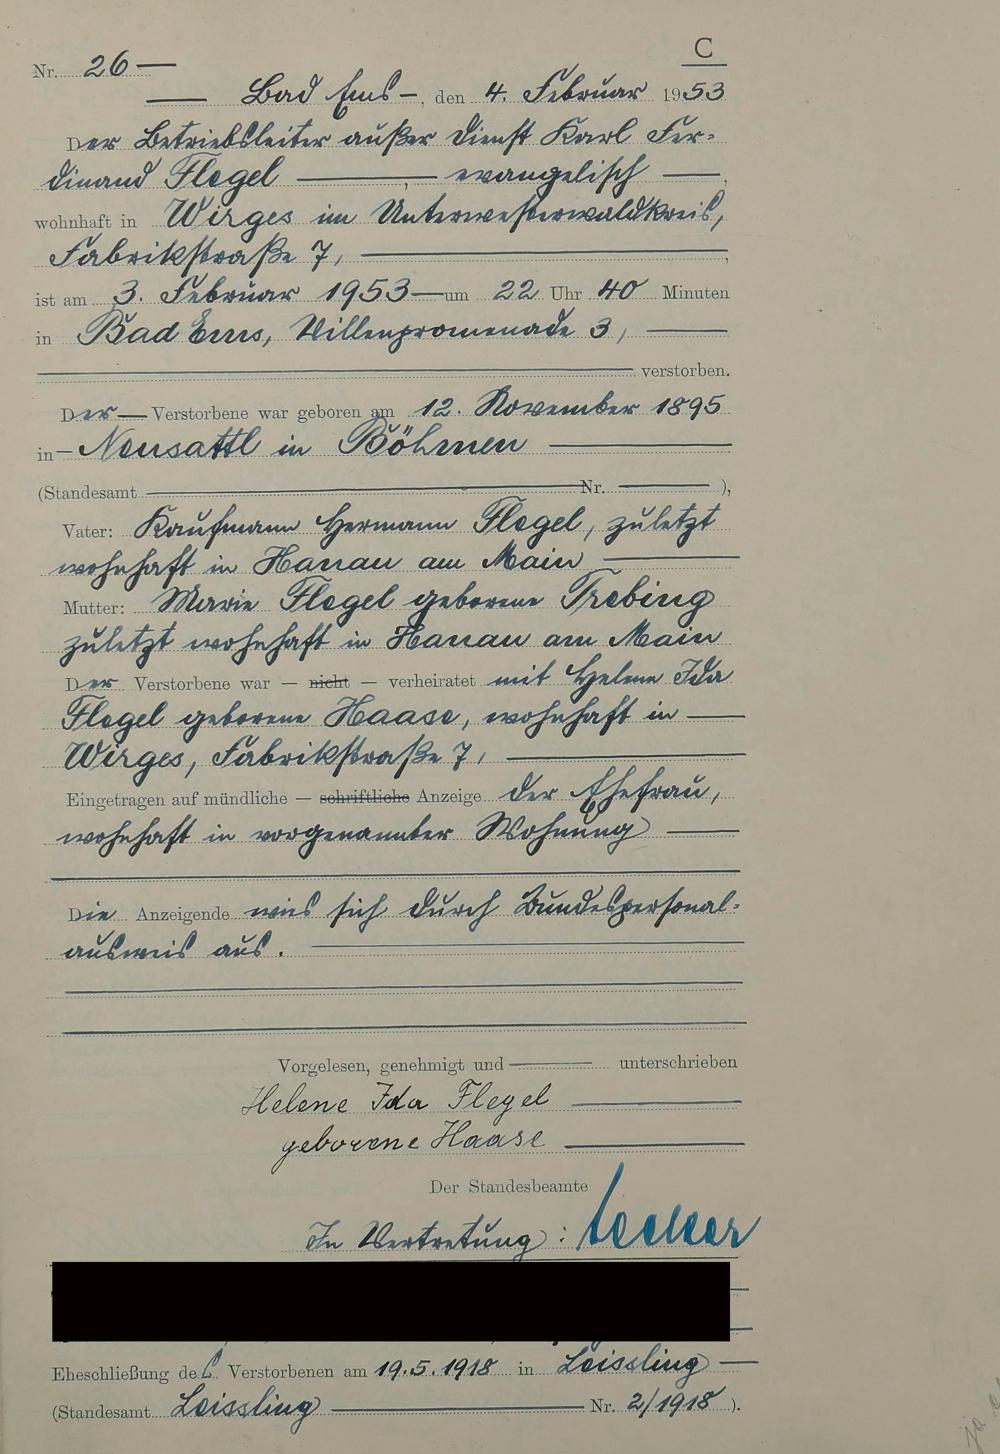 C
Nr. 26 —
— Bad Ems —, den 4. Februar 1953
Der Betriebsleiter außer Dienst Karl Fer-
dinand Flegel —, — evangelisch —,
wohnhaft in Wirges im Unterwesterwaldkreis,
Fabrikstraße 7, —,
ist am 3. Februar 1953 — um 22 Uhr 40 Minuten
in Bad Ems, Villenpromenade 3, —
— verstorben.
Der — Verstorbene war geboren am 12. November 1895
in — Neusattl in Böhmen —
(Standesamt — Nr. — ),
Vater: Kaufmann Hermann Flegel, zuletzt
wohnhaft in Hanau am Main —
Mutter: Marie Flegel geborene Trebing
zuletzt wohnhaft in Hanau am Main
Der Verstorbene war — nicht — verheiratet mit Helene Ida
Flegel geborene Haase, wohnhaft in —
Wirges, Fabrikstraße 7, —
Eingetragen auf mündliche — schriftliche Anzeige der Ehefrau,
wohnhaft in vorgenannter Wohnung —
Die Anzeigende wies sich durch Bundespersonal-
ausweis aus. —
Vorgelesen, genehmigt und — unterschrieben
Helene Ida Flegel —
geborene Haase —
Der Standesbeamte
In Vertretung:
Eheschließung des Verstorbenen am 19.5.1918 in Leissling —
(Standesamt Leissling — Nr. 2/1918 ).